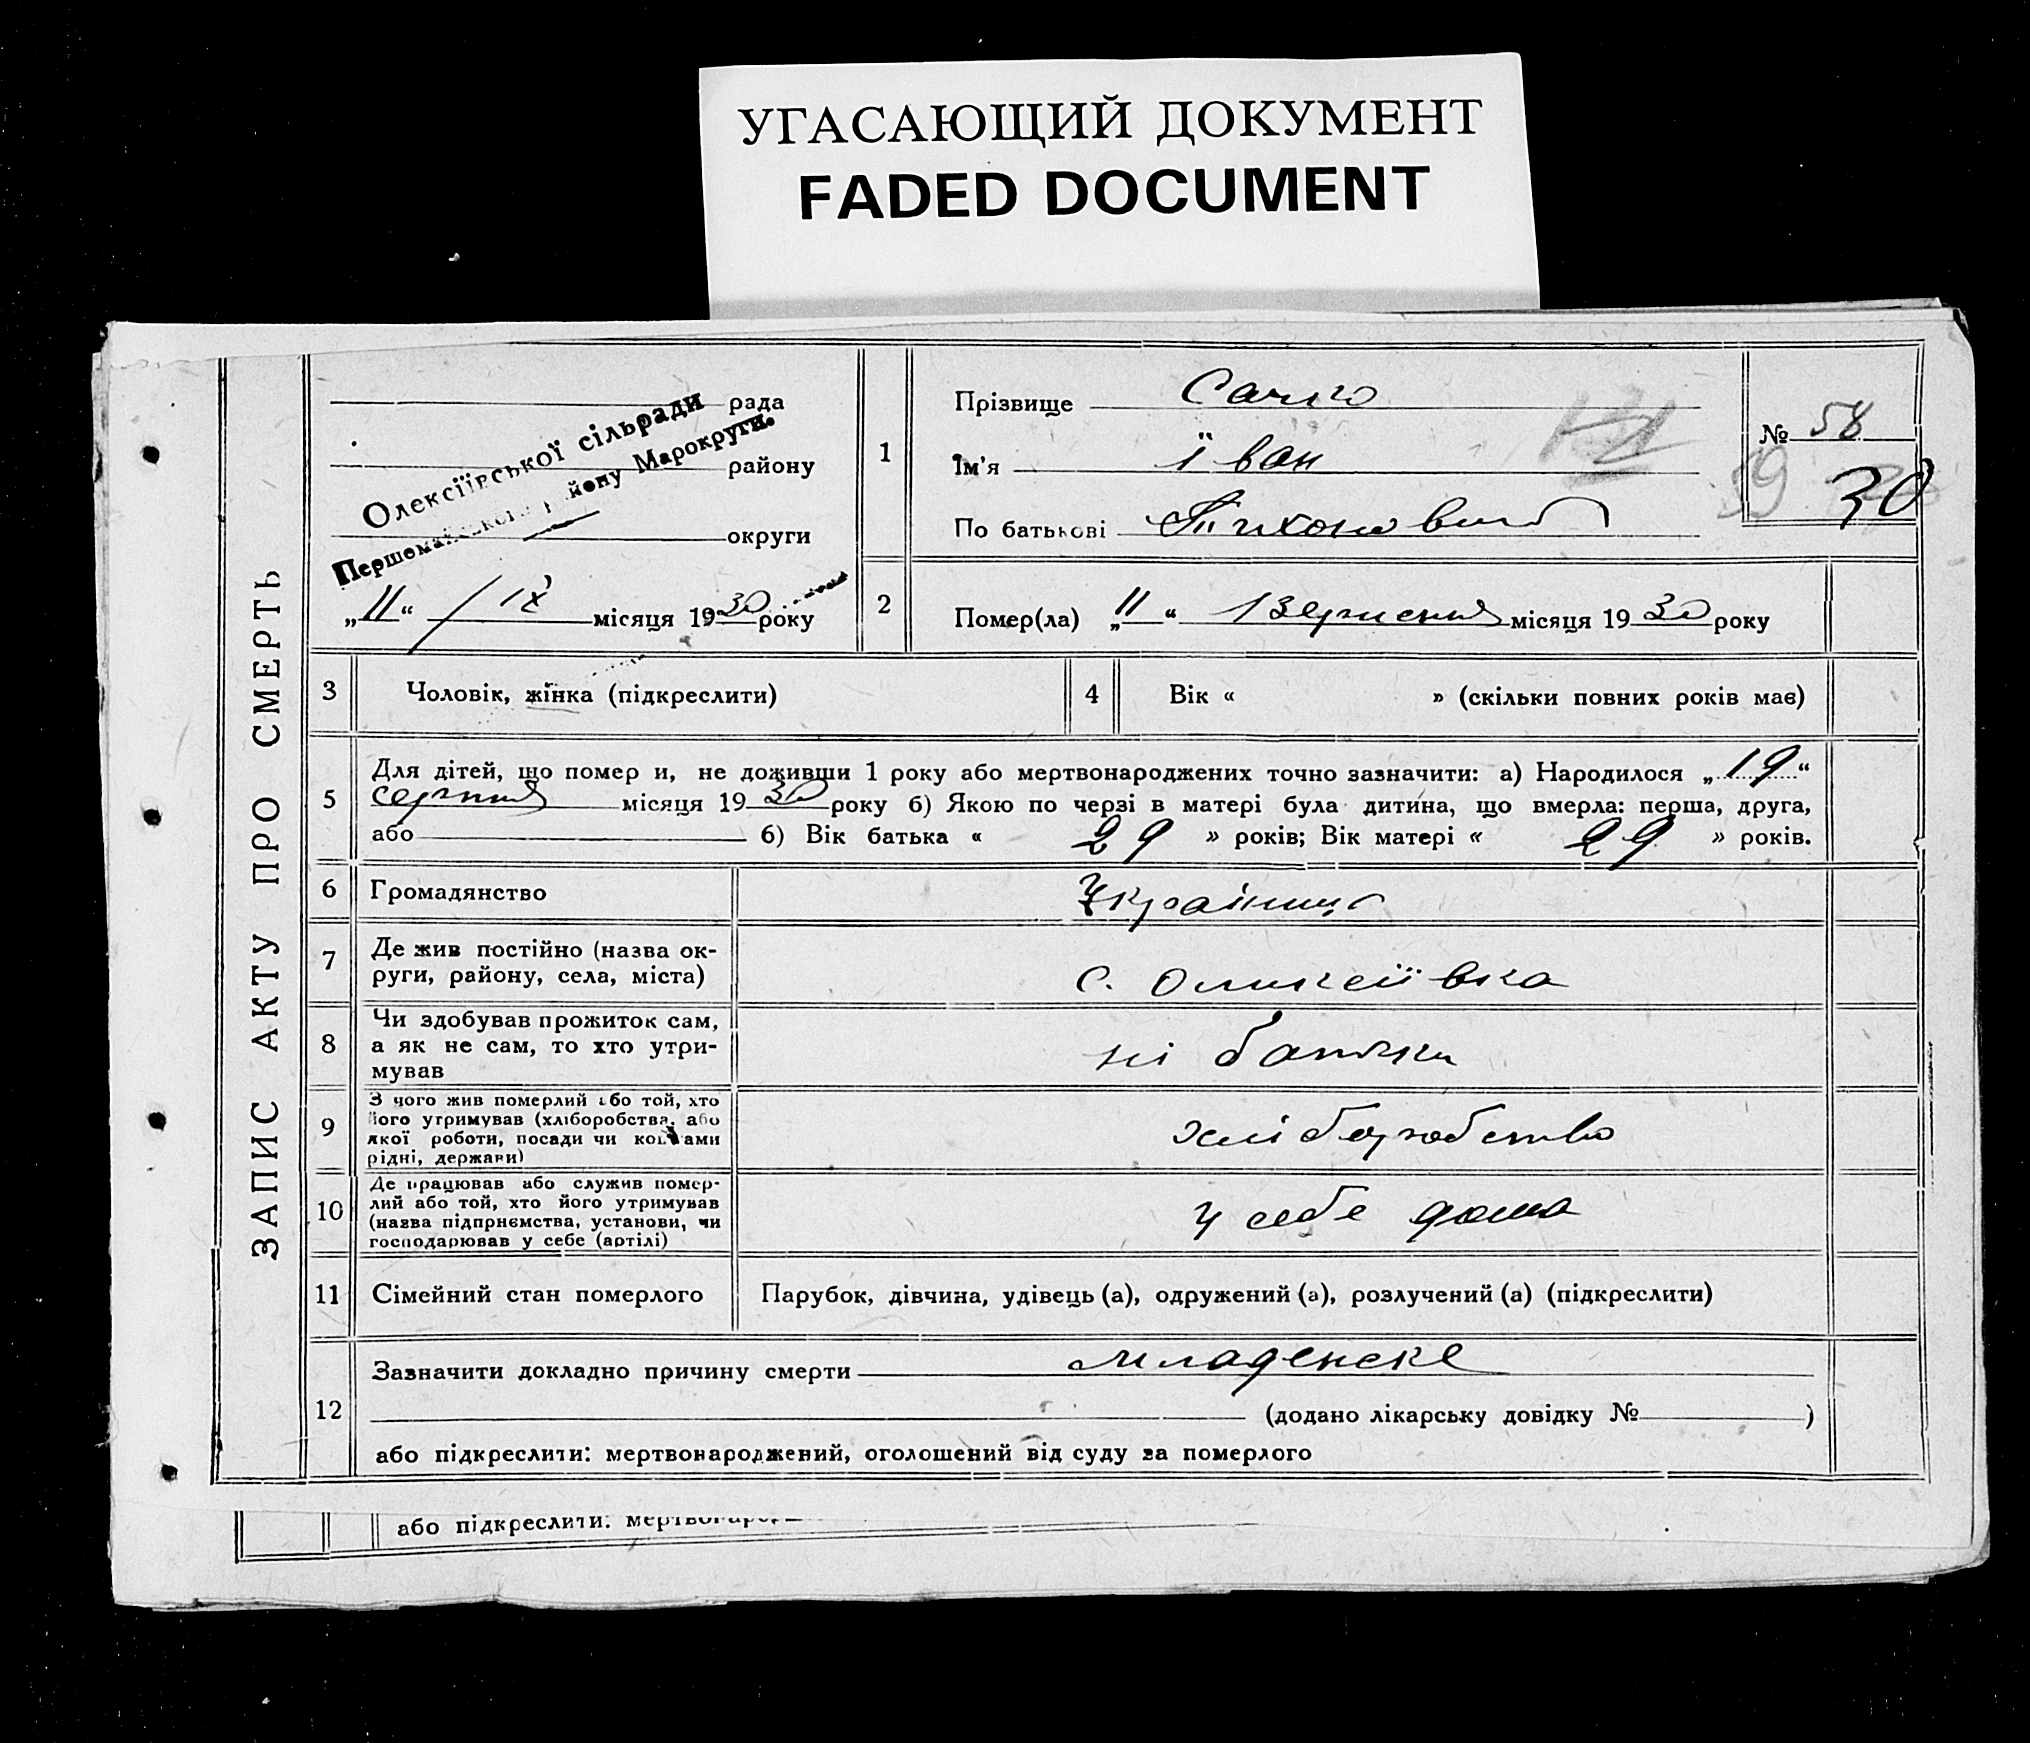 УГАСАЮЩИЙ ДОКУМЕНТ
FADED DOCUMENT
ЗАПИС АКТУ ПРО СМЕРТЬ
рада
району
округи
Олексіївської сільради
Першомайського району Марокруги.
„11“ / IX місяця 1930 року
1
Прізвище
Ім'я Іван
По батькові Тихонович
№ 58
59
30
2
Помер(ла) „11“ Вересня місяця 1930 року
3
Чоловік, жінка (підкреслити)
4
Вік « » (скільки повних років має)
5
Для дітей, що померли, не доживши 1 року або мертвонароджених точно зазначити: а) Народилося „19“
серпня місяця 1930 року б) Якою по черзі в матері була дитина, що вмерла: перша, друга,
або 6) Вік батька « 29 » років; Вік матері « 29 » років.
6
Громадянство
7
Де жив постійно (назва ок-
руги, району, села, міста)
с. Оликсіївка
8
Чи здобував прожиток сам,
а як не сам, то хто утри-
мував
ні батьки
9
З чого жив померлий або той, хто
його утримував (хліборобства, або
якої роботи, посади чи коштами
рідні, держави)
хліборобство
10
Де працював або служив помер-
лий або той, хто його утримував
(назва підприємства, установи, чи
господарював у себе (артілі)
у себе дома
11
Сімейний стан померлого
Парубок, дівчина, удівець (а), одружений (а), розлучений (а) (підкреслити)
12
Зазначити докладно причину смерти младенске
(додано лікарську довідку № )
або підкреслити: мертвонароджений, оголошений від суду за померлого
або підкреслити: мертвонарод